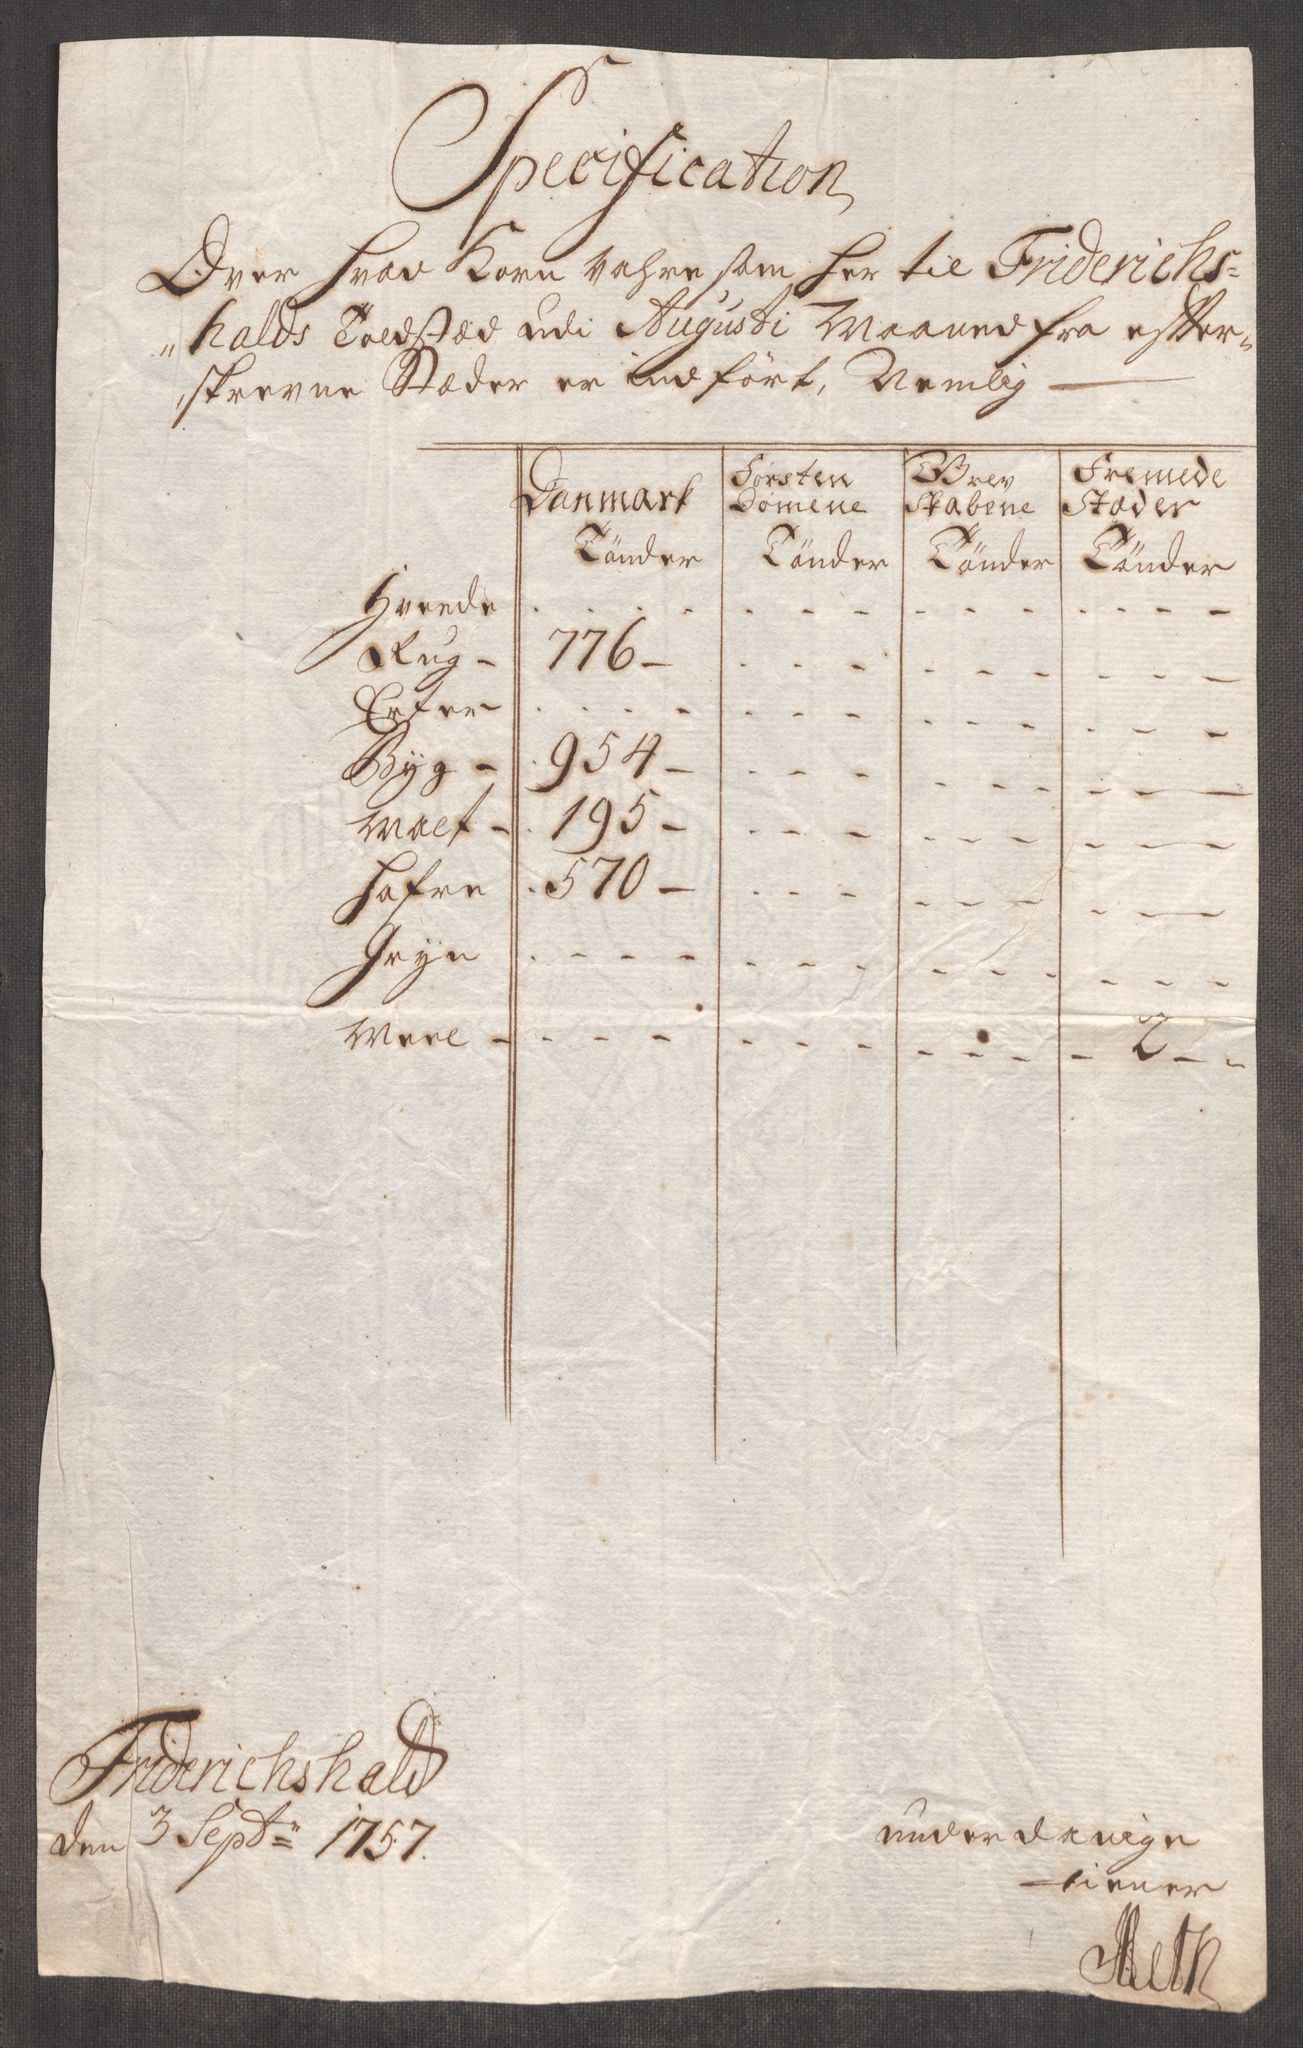 Specification
Over hvad Korn vahre som her til Friderichs=
"halds Toldstæd udi Augusti Maaned fra efter=
skrevne Stæder er indført, Nemlig —
Danmark Førsten Grev Fremede
Dømene Skabene Stæder
Tönder Tönder Tönder Tönder
Hvede . . . . - - - - - - - - - -
Rug - 776 - . . - - - - - - -
Erter . . . - - - - - - - - - -
Byg - . 954 - - - - - - - - - -
Malt - . 195 - - - - - - - - - -
Hafre . 570 - - - - - - - - - -
Gryn . - - - - - - - - - - - -
Meel - - - - - - - - - - - - - 2 - -
Friderichshald
den 3 Sept= 1757.
underdanige
tiener